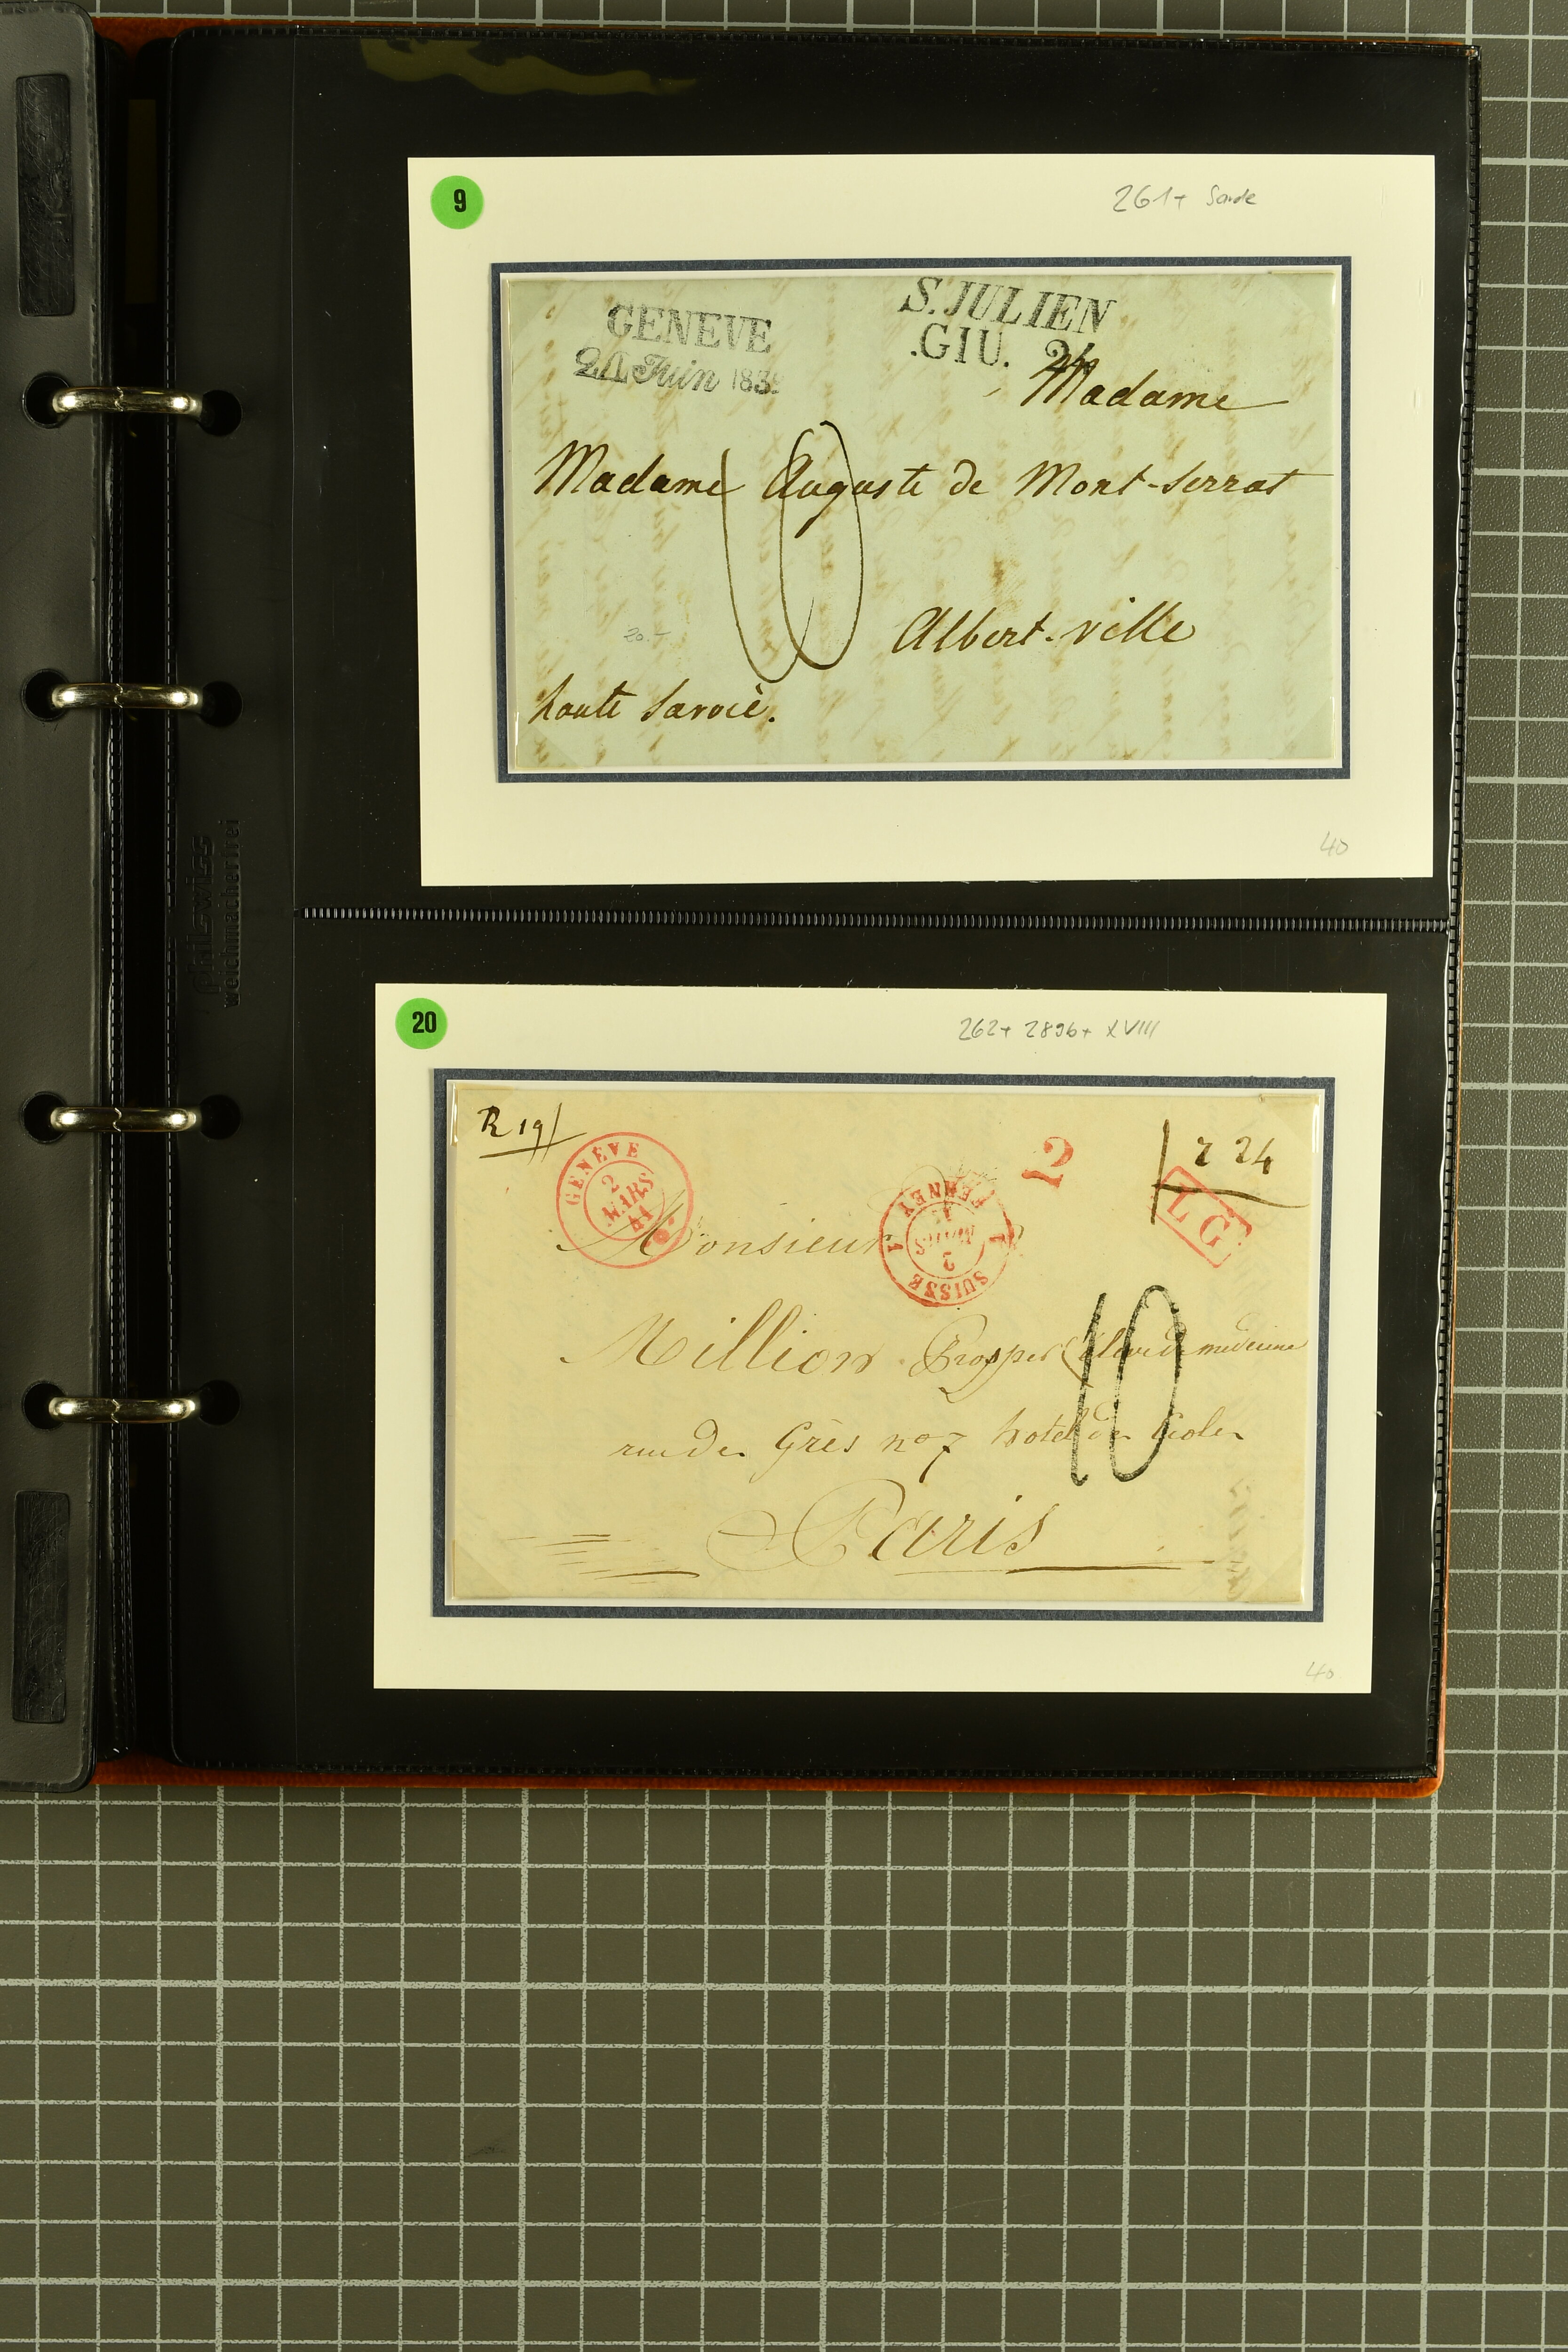 9
261+ Sarde
GENEVE
S. JULIEN
.GIU. 24
24 Juin 183
Madame
Madame Auguste de Mont-Serrat
10
20.-
Albert-ville
haute Savoie.
40
philswiss
weichmacherfrei
20
262+ 2896+ XVIII
R 19
2
2 24
GENÈVE
2
MARS
41
1 SUISSE 1
2
MARS
FERNEY
L G
Monsieur
Million Prosper Elève de médecine
10
rue de Grès no 7 hotel de
Paris
40